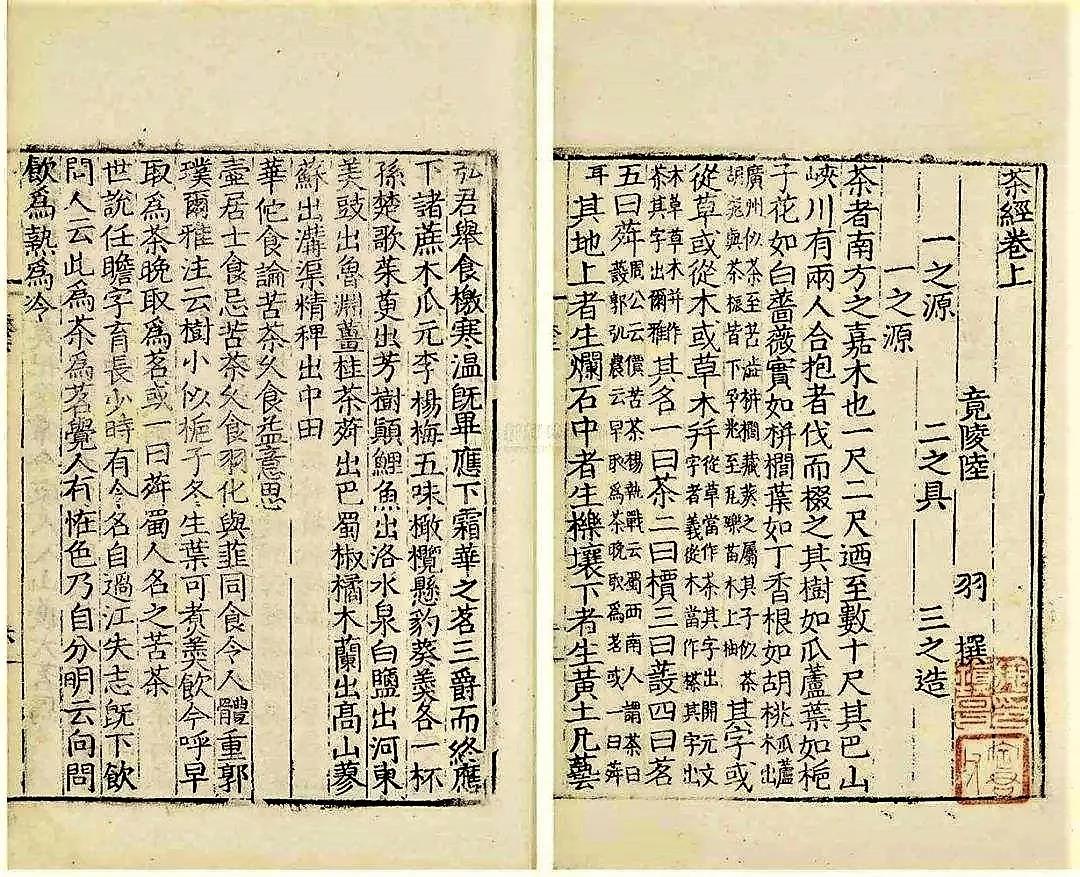 茶經卷上
竟陵陸 羽 撰
一之源 二之具 三之造
一之源
茶者南方之嘉木也一尺二尺迺至數十尺其巴山
峽川有兩人合抱者伐而掇之其樹如瓜蘆葉如梔
子花如白薔薇實如栟櫚葉如丁香根如胡桃瓜蘆木出
廣州似茶至苦澁栟櫚蒲葵之屬其子似茶胡桃與茶根皆下孕兆至瓦礫苗木上抽其字或
從草或從木或草木幷從草當作茶其字出開元文字者義從木當作㮈其字出
本草草木并作茶其字出爾雅其名一曰茶二曰檟三曰蔎四曰茗
五曰荈周公云檟苦茶楊執戟云蜀西南人謂茶曰蔎郭弘農云早取爲茶晚取爲茗或一曰荈
耳其地上者生爛石中者生櫟壤下者生黃土凡藝
弘君舉食檄寒温旣畢應下霜華之茗三爵而終應
下諸蔗木瓜元李楊梅五味橄欖懸豹葵羹各一杯
孫楚歌茱茰出芳樹顚鯉魚出洛水泉白鹽出河東
美豉出魯淵薑桂茶荈出巴蜀椒橘木蘭出高山蓼
蘇出溝渠精稗出中田
華佗食論苦茶乆食益意思
壺居士食忌苦茶乆食羽化與韮同食令人體重郭
璞爾雅注云樹小似梔子冬生葉可煑羹飲今呼早
取爲茶晚取爲茗或一曰荈蜀人名之苦茶
世說任瞻字育長少時有令名自過江失志旣下飲
問人云此爲茶爲茗覺人有恠色乃自分明云向問
飲爲熱爲冷